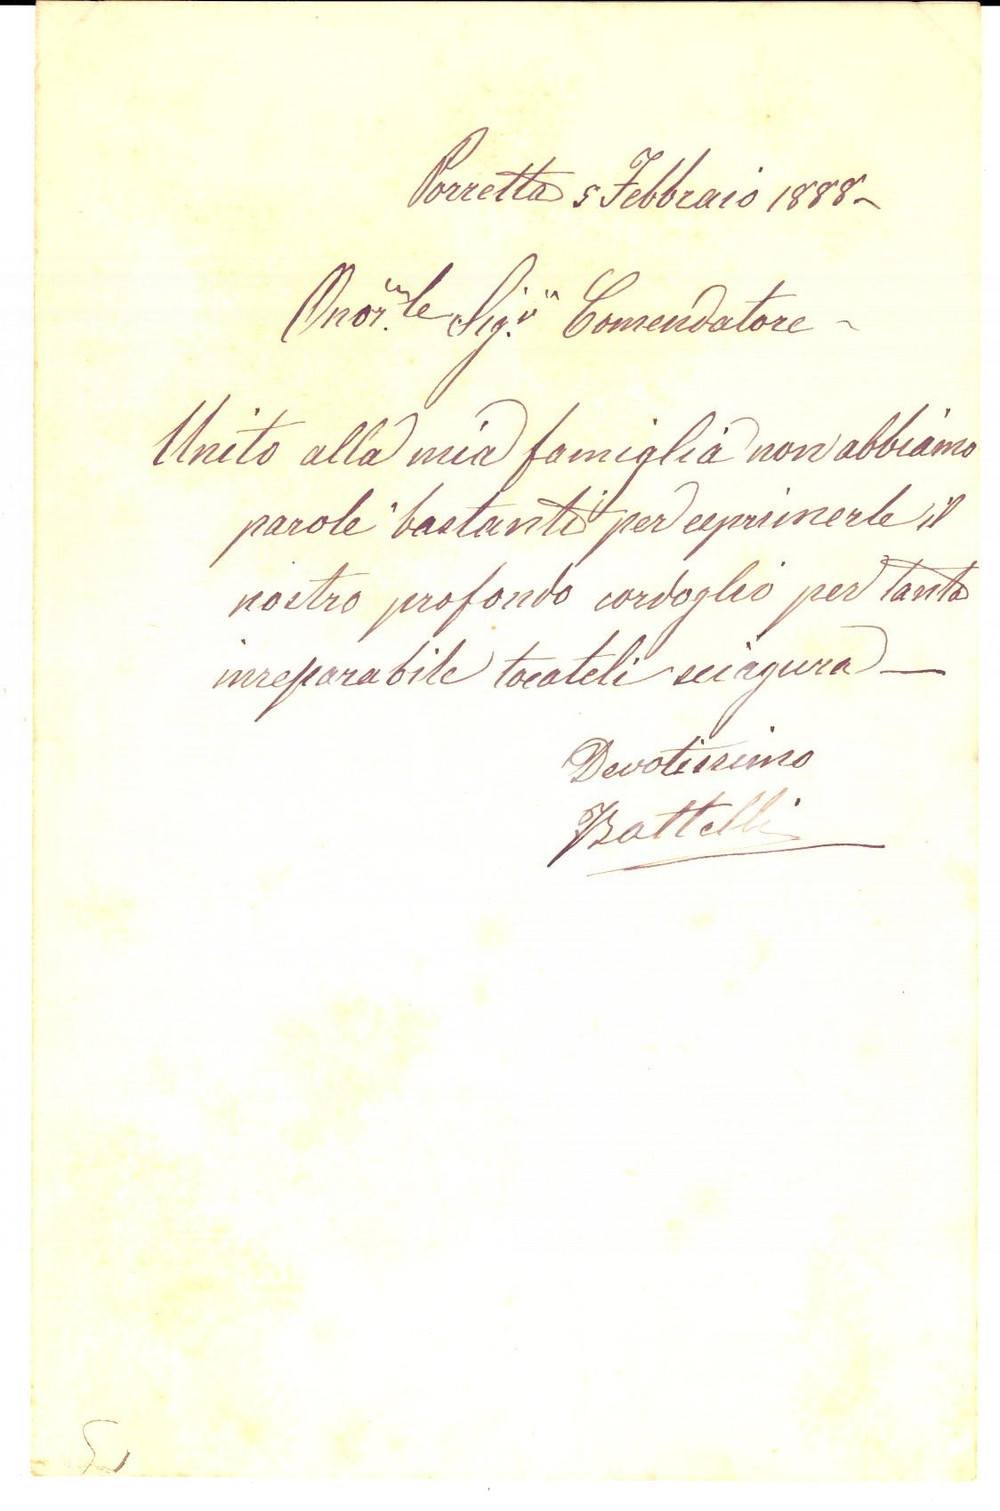 Porretta 5 Febbraio 1888 -
Onor.le Sig.r Comendatore -
Unito alla mia famiglia non abbiamo
parole bastanti per esprimerle il
nostro profondo cordoglio per tanta
irreparabile tocateli sciagura —
Devotissimo
Battelli